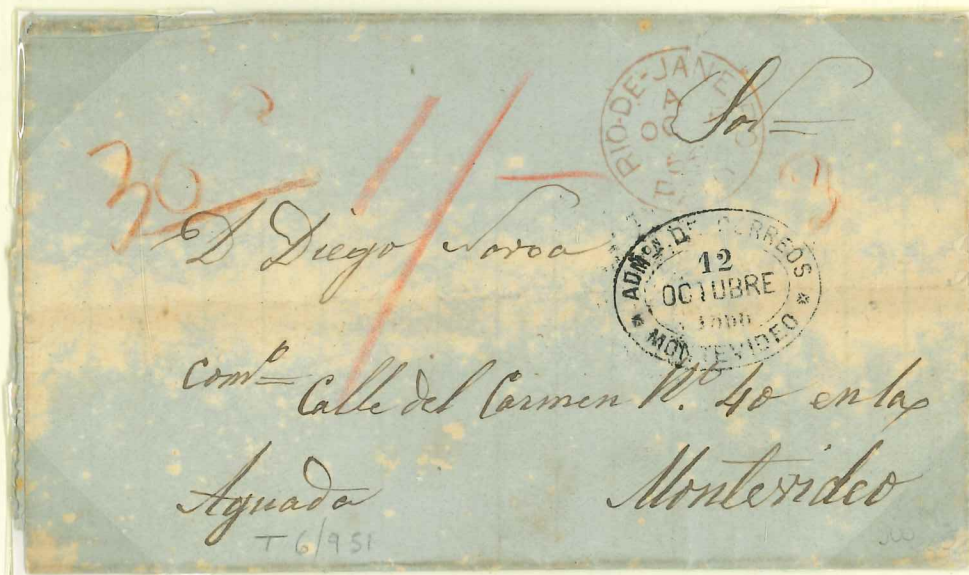 Sor
RIO-DE-JANEIRO
A
OC
PAID
30
1/-
3
D Diego Novoa
ADMON DE CORREOS
12
OCTUBRE
MONTEVIDEO
comº
Calle del Carmen Nº. 40 en la
Aguada
Montevideo
T 6/9 51